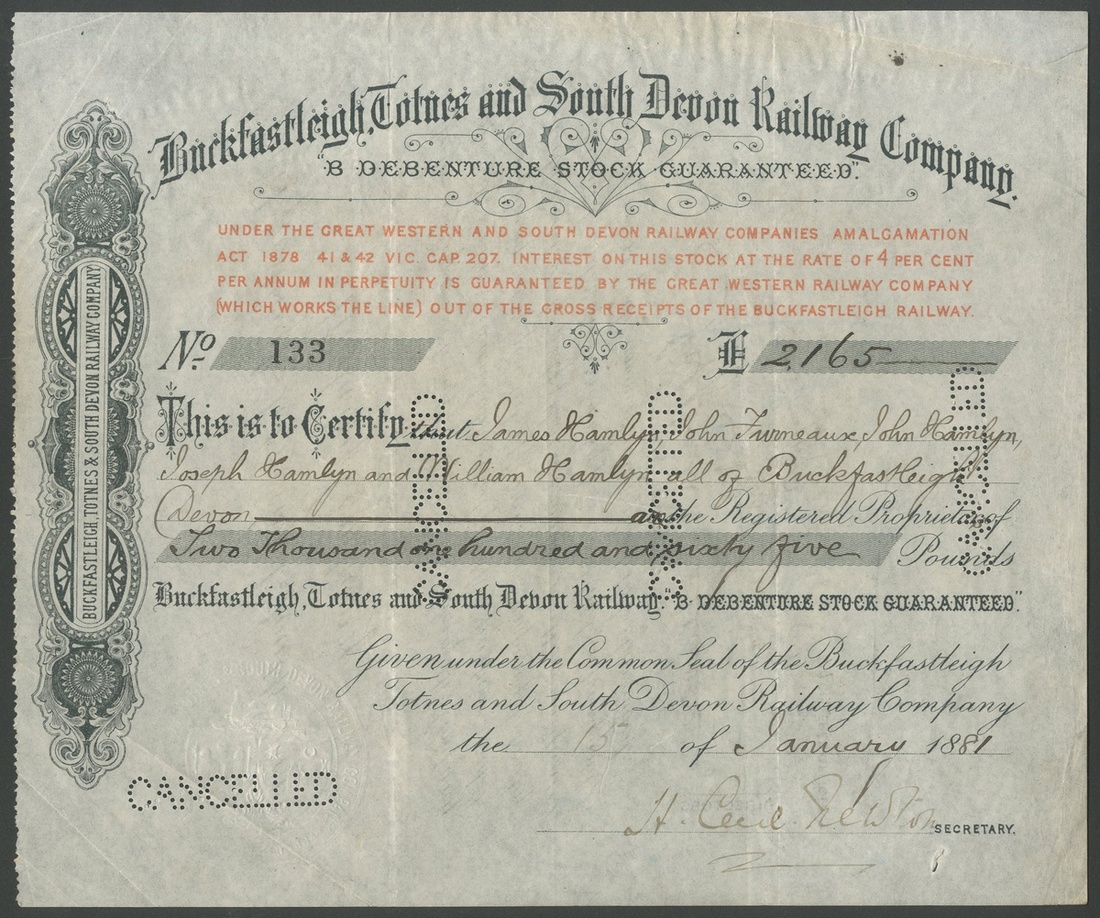 Buckfastleigh, Totnes and South Devon Railway Company.
"B DEBENTURE STOCK GUARANTEED".
UNDER THE GREAT WESTERN AND SOUTH DEVON RAILWAY COMPANIES AMALGAMATION
ACT 1878 41 & 42 VIC. CAP. 207. INTEREST ON THIS STOCK AT THE RATE OF 4 PER CENT
PER ANNUM IN PERPETUITY IS GUARANTEED BY THE GREAT WESTERN RAILWAY COMPANY
(WHICH WORKS THE LINE) OUT OF THE GROSS RECEIPTS OF THE BUCKFASTLEIGH RAILWAY.
No 133 £ 2,165
This is to Certify that James Hamlyn, John Furneaux, John Hamlyn,
Joseph Hamlyn and William Hamlyn all of Buckfastleigh
Devon are the Registered Proprietors of
Two Thousand one hundred and sixty five Pounds
Buckfastleigh, Totnes and South Devon Railway. "B DEBENTURE STOCK GUARANTEED".
Given under the Common Seal of the Buckfastleigh
Totnes and South Devon Railway Company
the 15 of January 1881
H. Cecil Newton SECRETARY.
BUCKFASTLEIGH TOTNES & SOUTH DEVON RAILWAY COMPANY
CANCELLED
CANCELLED
CANCELLED
CANCELLED